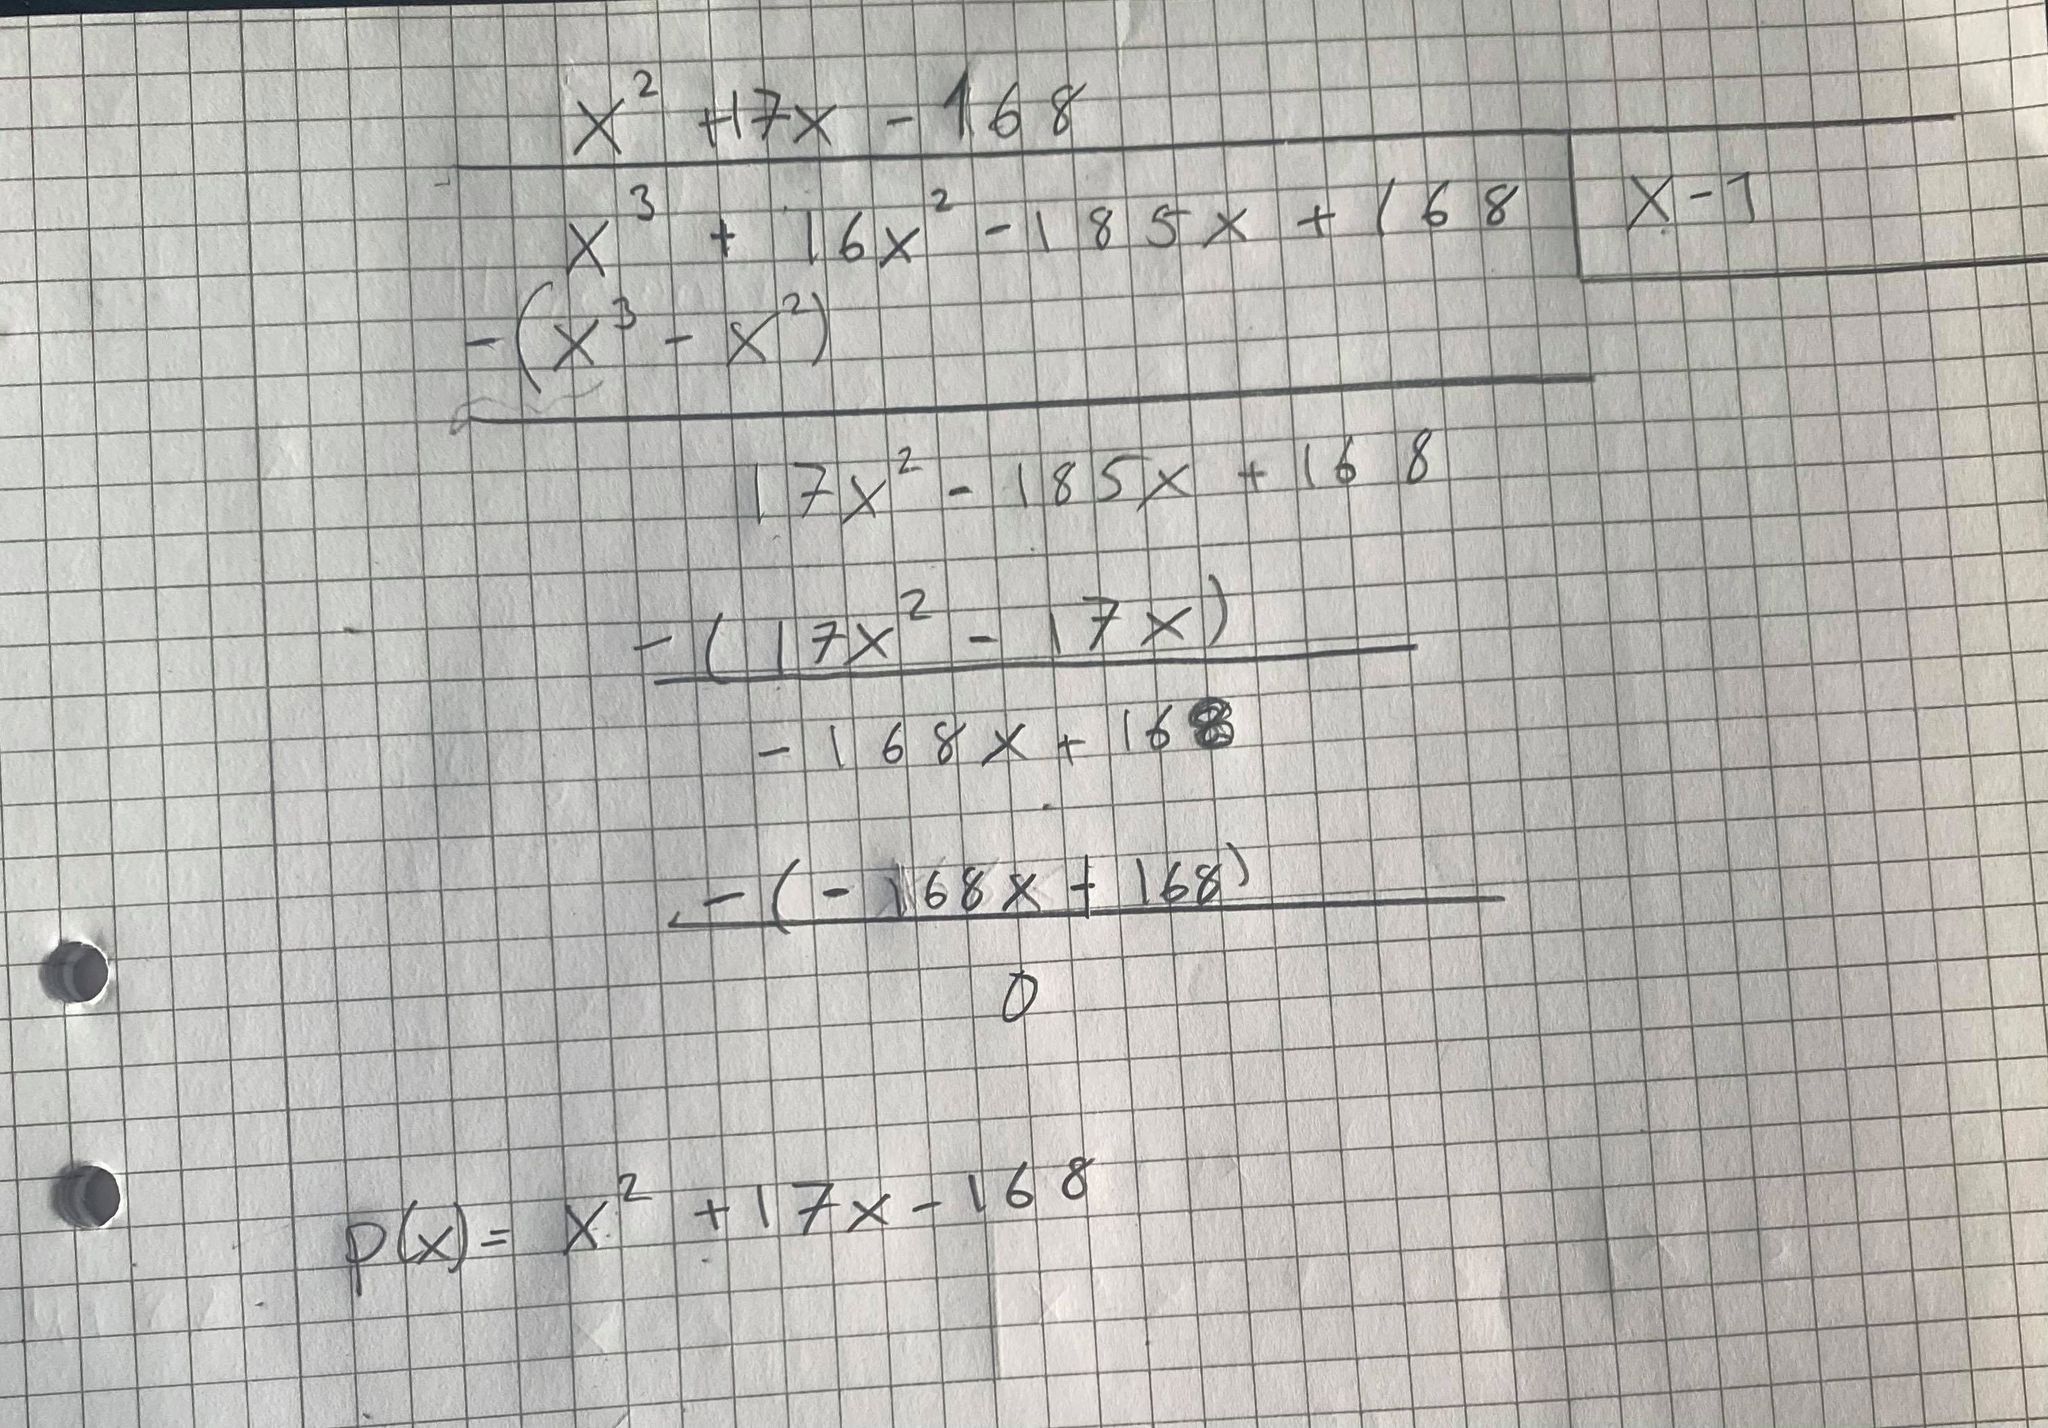 x² +17x - 168
x³ + 16x² - 185x + 168 | x-1
-(x³ - x²)
17x² - 185x + 168
-(17x² - 17x)
-168x + 168
-(-168x + 168)
0
p(x)= x² +17x-168